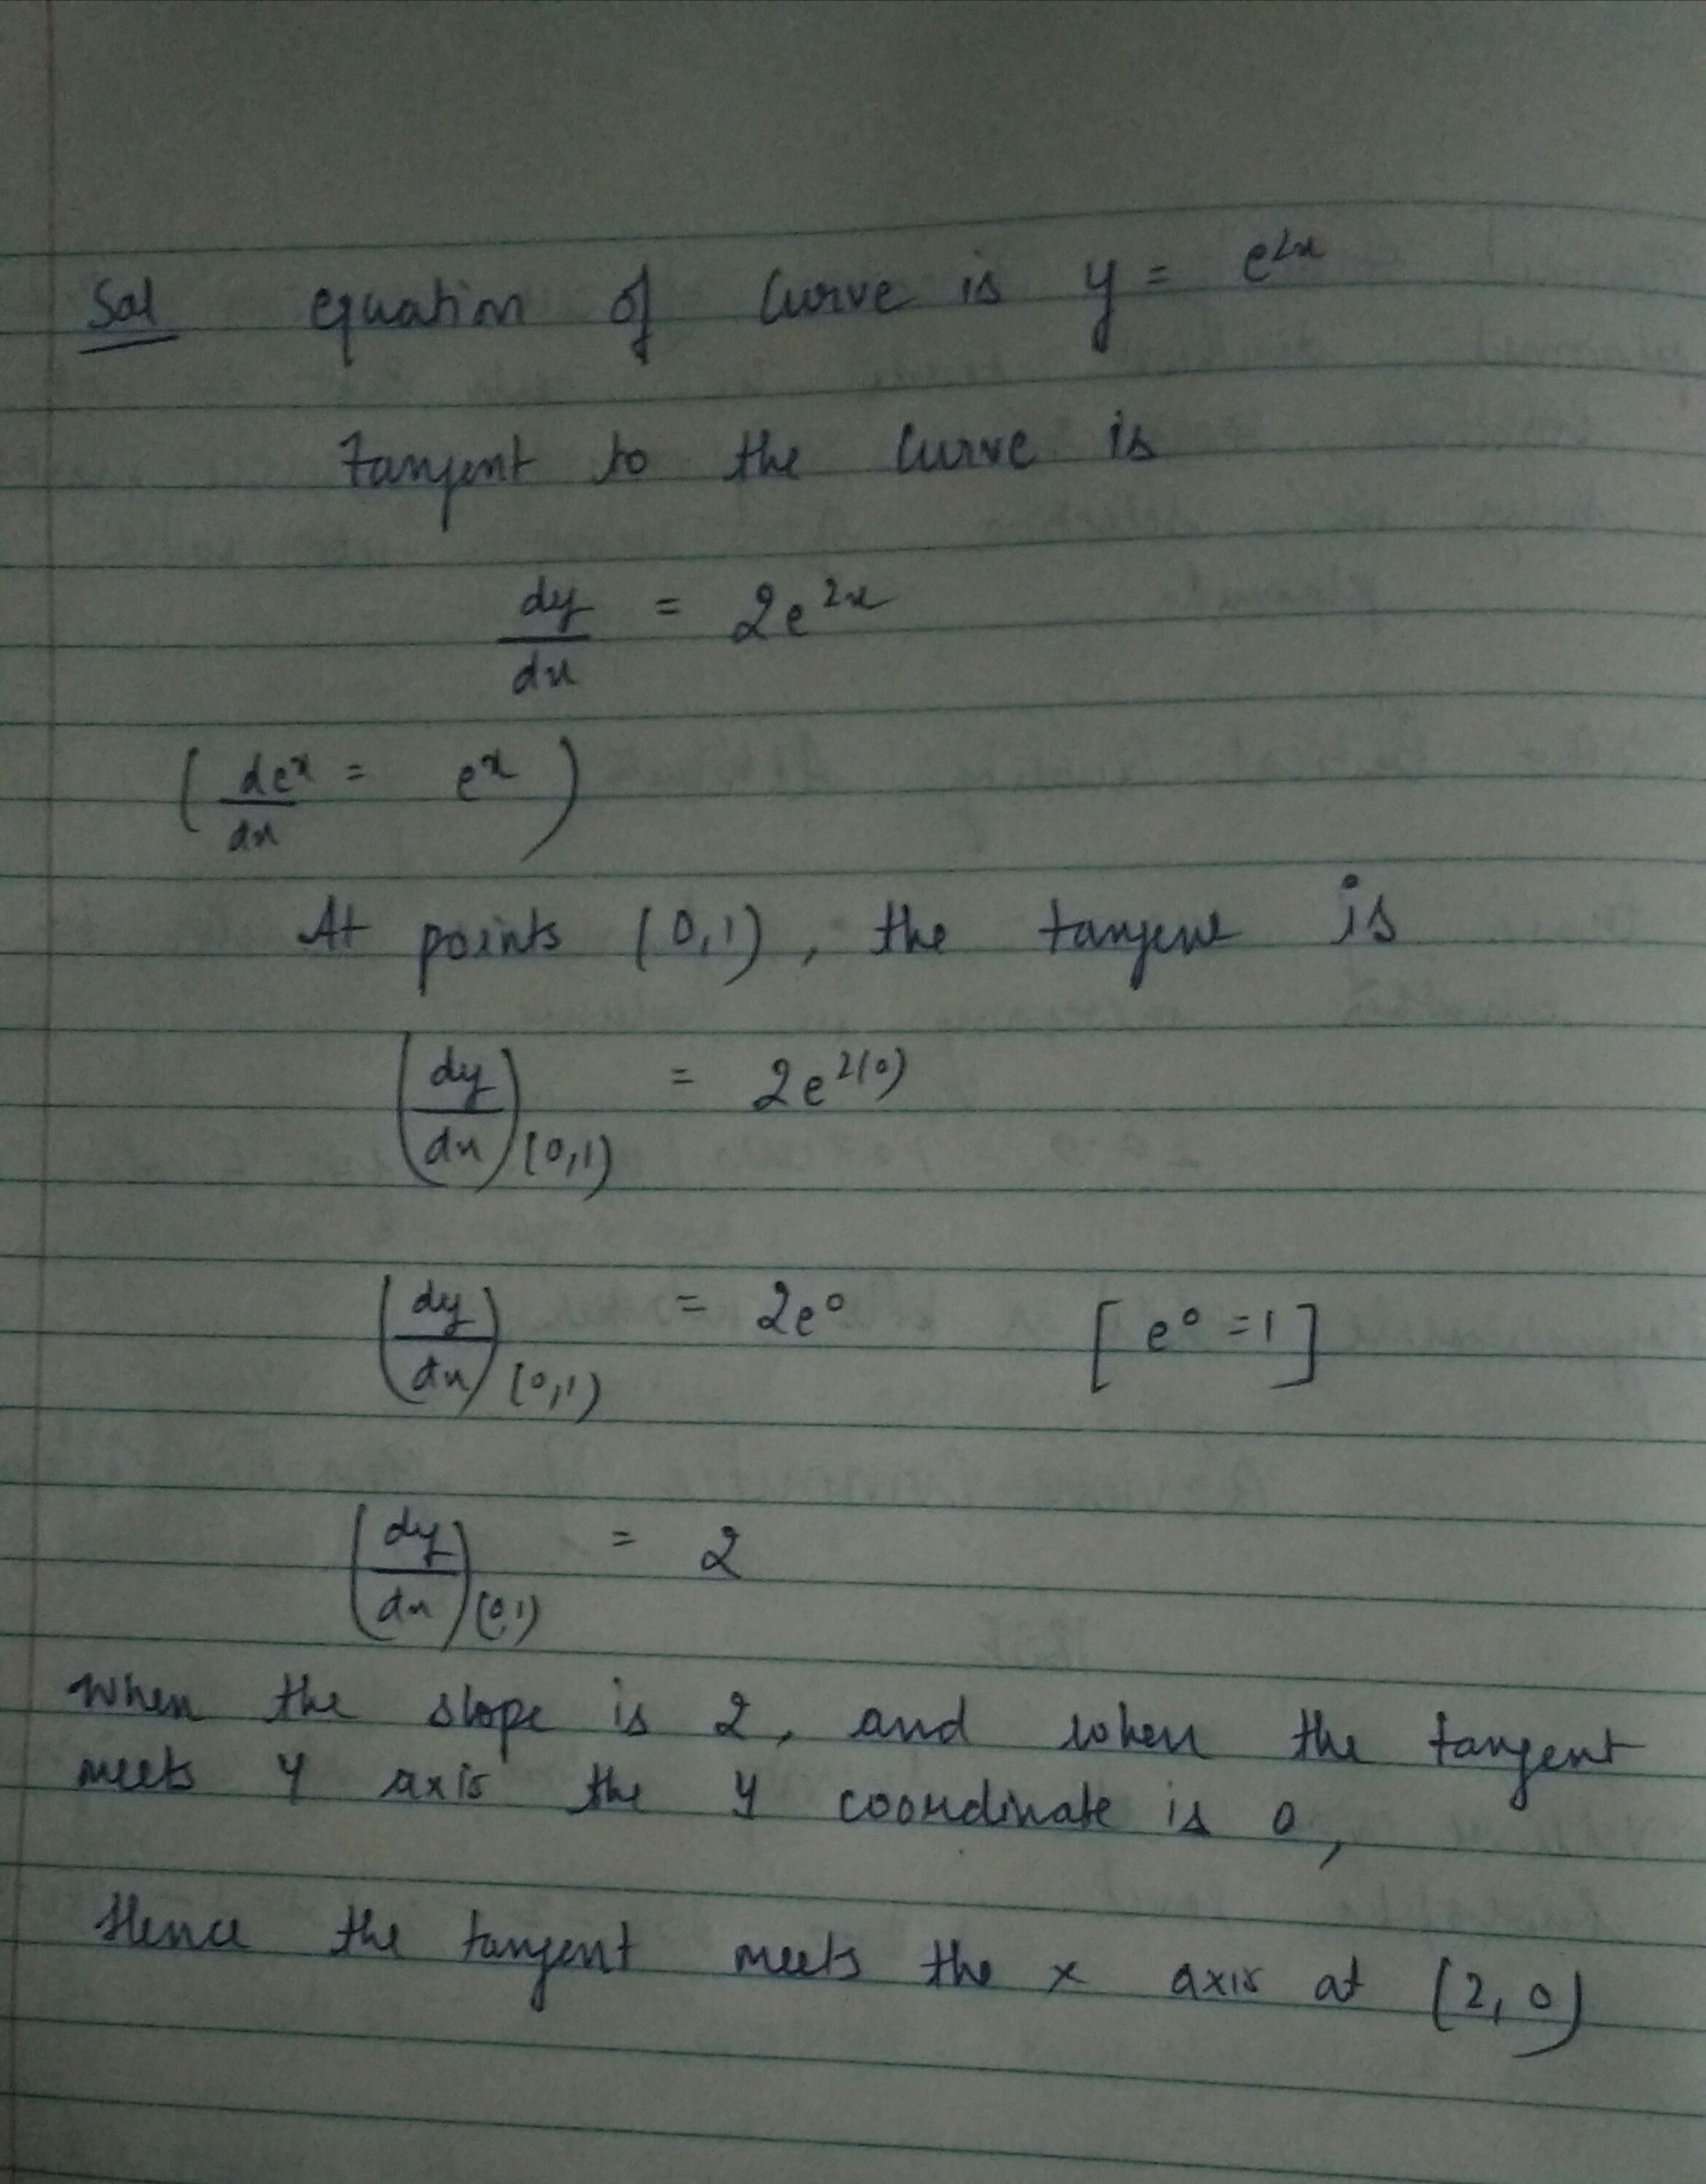 Sol equation of Curve is y = e^2x
tangent to the curve is
dy/dx = 2e^2x
(de^x/dx = e^x)
At points (0,1), the tangent is
(dy/dx)(0,1) = 2e^2(0)
(dy/dx)(0,1) = 2e^0 [e^0 = 1]
(dy/dx)(0,1) = 2
When the slope is 2, and when the tangent
meets y axis the y coordinate is 0,
Hence the tangent meets the x axis at (2,0)